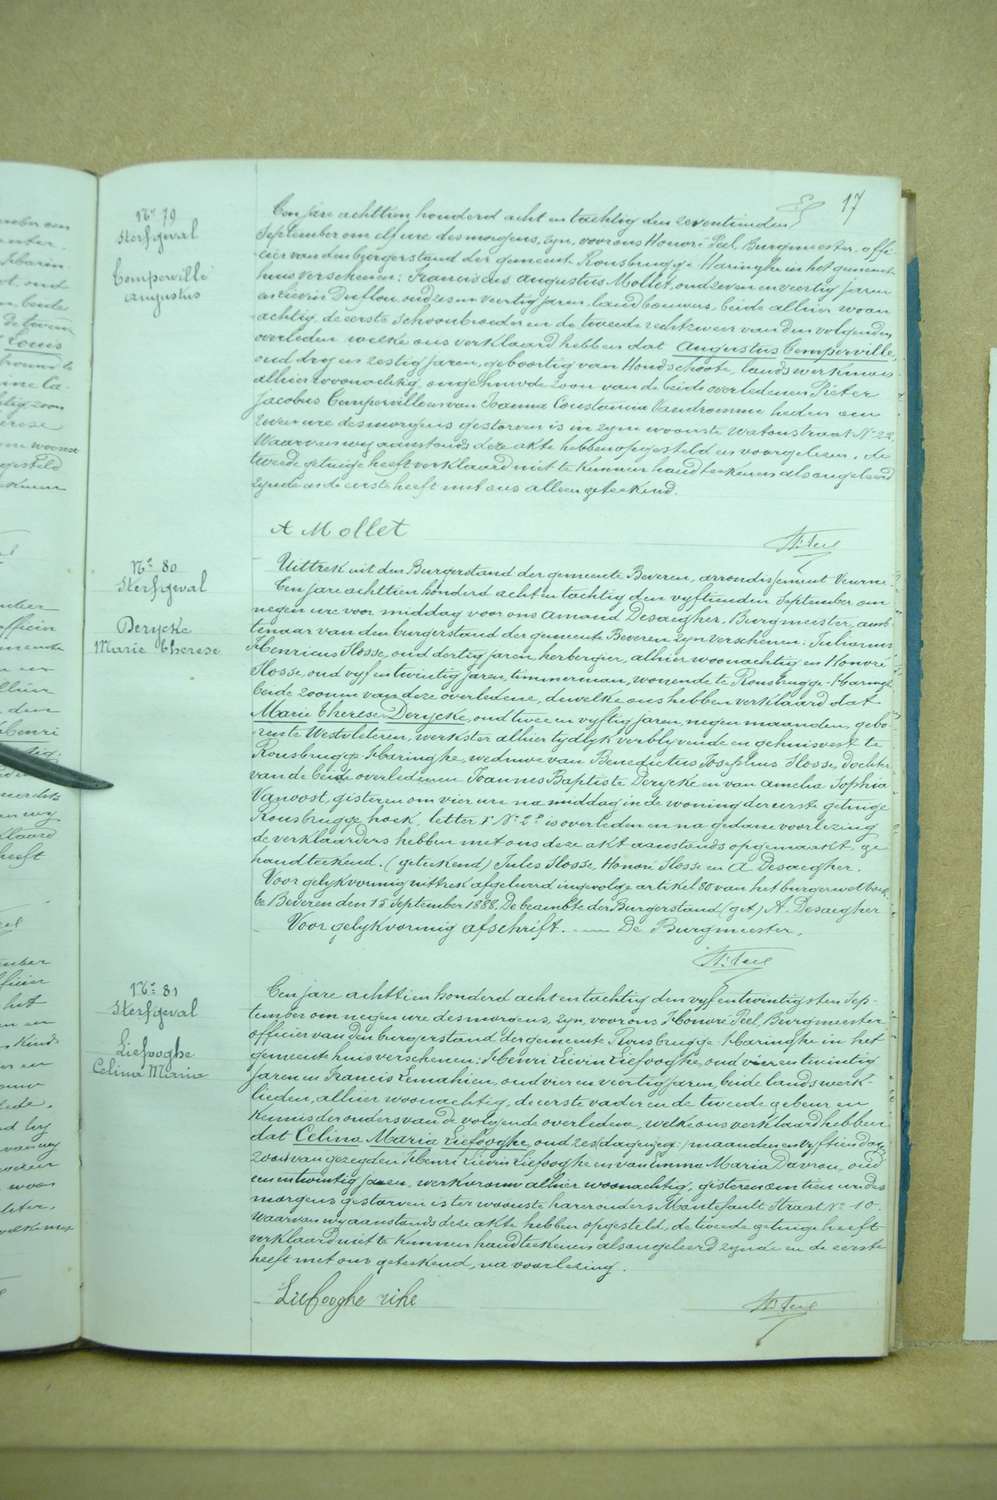 17
Nr 79
Sterfgeval
Comperville
Augustus
Ten jare achttien honderd acht en tachtig den zeventienden
September om elf ure des morgens, zyn, voor ons Honoré Peel Burgmeester, offi-
cier van den burgerstand der gemeente Rousbrugge Haringhe in het gemeente
huis verschenen: Franciscus Augustus Mollet, oud zeven en veertig jaren
en Lievin Duflou, oud zes en veertig jaren, landbouwers, beide alhier woon
achtig, de eerste schoonbroeder en de tweede rechtzweer van den volgenden
overleden welke ons verklaard hebben dat Augustus Comperville,
oud dry en zestig jaren, geboortig van Hondschoote, landswerkman
alhier woonachtig, ongehuwde zoon van de beide overledenen Pieter
Jacobus Comperville en van Joanna Constantia Vandromme heden om
twee ure des morgens gestorven is in zyn woonste Watoustraat No 22.
Waarvan wy aanstonds deze akte hebben opgesteld en voorgelezen, de
tweede getuige heeft verklaard niet te kunnen handteekenen als ongeleerd
zynde en de eerste heeft met ons alleen geteekend.
A Mollet
H. Peel
Nr 80
Sterfgeval
Derycke
Marie Therese
Uittrek uit den Burgerstand der gemeente Beveren, arrondissement Veurne.
Ten jare achttien honderd acht en tachtig den vyftienden September om
negen ure voor middag voor ons Amand Desaegher, Burgmeester, amb-
tenaar van den burgerstand der gemeente Beveren, zyn verschenen: Julianus
Henricus Hosse, oud dertig jaren, herbergier, alhier woonachtig en Honoré
Hosse, oud vyf en twintig jaren, timmerman, wonende te Rousbrugge-Haringhe
beide zoonen van deze overledene, dewelke ons hebben verklaard dat
Marie Therese Derycke, oud twee en vyftig jaren, negen maanden, gebo-
ren te Westvleteren, werkster alhier tydelyk verblyvende en gehuisvest te
Rousbrugge Haringhe, weduwe van Benedictus Josephus Hosse, dochter
van de beide overledenen Joannes Baptiste Derycke en van Amelia Sophia
Vanoost, gisteren om vier ure na middag in de woning der eerste getuige
Rousbrugge hoek, letter No 2 is overleden en na gedane voorlezing
de verklaarders hebben met ons deze akt aanstonds opgemaakt, ge
handteekend. (geteekend) Jules Hosse, Honoré Hosse en A Desaegher.
Voor gelykvormig uittrek afgeleverd ingevolge artikel 80 van het burgerwetboek
te Beveren den 15 September 1888. De beambte der Burgerstand (get) A. Desaegher
Voor gelykvormig afschrift. De Burgmeester.
H. Peel
Nr 81
Sterfgeval
Liefooghe
Celina Maria
Ten jare achttien honderd acht en tachtig den vyf en twintigsten Sep-
tember om negen ure des morgens, zyn, voor ons Honoré Peel, Burgmeester
officier van den burgerstand der gemeente Rousbrugge-Haringhe in het
gemeente huis verschenen: Henri Lievin Liefooghe, oud vier en twintig
jaren en Francis Lemahieu, oud vier en veertig jaren, beide landswerk-
lieden, alhier woonachtig, de eerste vader en de tweede gebeur en
kennis der ouders van de volgende overledene, welke ons verklaard hebben
dat Celina Maria Liefooghe, oud zes maanden en vyftien dagen
van gezegden Henri Lievin Liefooghe en van Emma Maria Davrou, oud
een en twintig jaren, werkvrouw alhier woonachtig, gisteren om tien ure des
morgens gestorven is ter woonste harer ouders Mantefault Straat No 10.
waarvan wy aanstonds deze akte hebben opgesteld, de tweede getuige heeft
verklaard niet te kunnen handteekenen als ongeleerd zynde en de eerste
heeft met ons geteekend, na voorlezing.
Liefooghe rike
H. Peel